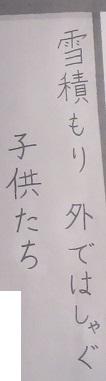 雪積もり 外ではしゃぐ
子供たち